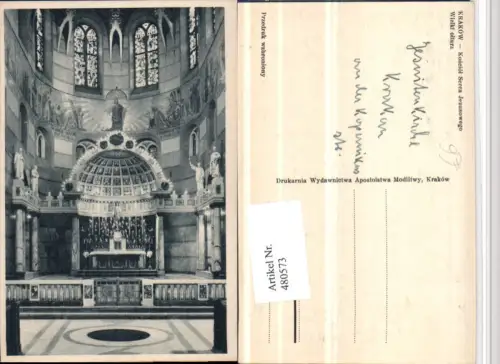 KRAKÓW — Kościół Serca Jezusowego
Wielki ołtarz.
Przedruk wzbroniony
Jesuitenkirche
Krakau
an der Kopernikus
str.
99
Drukarnia Wydawnictwa Apostolstwa Modlitwy, Kraków
Artikel Nr.
480573